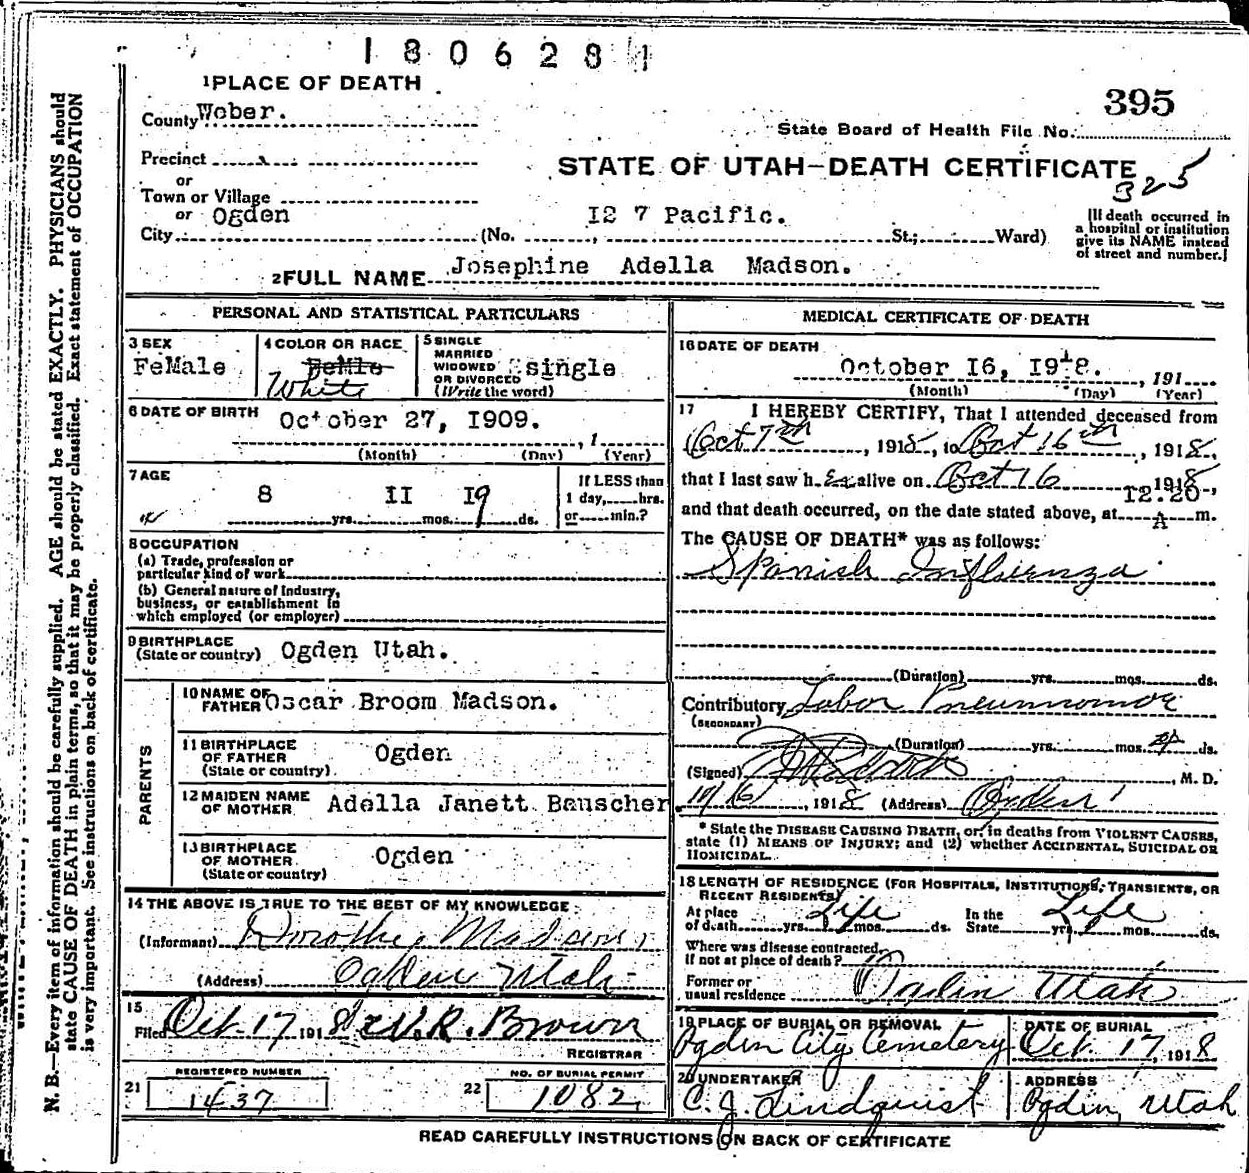 1806281
1 PLACE OF DEATH
395
County Weber.
State Board of Health File No.
Precinct
STATE OF UTAH—DEATH CERTIFICATE
325
or
Town or Village
or Ogden
I2 7 Pacific.
City (No. , St.; Ward)
[If death occurred in
a hospital or institution
give its NAME instead
of street and number.]
2 FULL NAME Josephine Adella Madson.
PERSONAL AND STATISTICAL PARTICULARS
3 SEX
FeMale
4 COLOR OR RACE
FeMle
White
5 SINGLE
MARRIED
WIDOWED
OR DIVORCED
(Write the word)
single
6 DATE OF BIRTH
October 27, I909.
, 1
(Month) (Day) (Year)
7 AGE
8 yrs. II mos. I9 ds.
If LESS than
1 day, hrs.
or min.?
8 OCCUPATION
(a) Trade, profession or
particular kind of work
(b) General nature of industry,
business, or establishment in
which employed (or employer)
9 BIRTHPLACE
(State or country) Ogden Utah.
PARENTS
10 NAME OF
FATHER Oscar Broom Madson.
11 BIRTHPLACE
OF FATHER
(State or country) Ogden
12 MAIDEN NAME
OF MOTHER Adella Janett Bauscher
13 BIRTHPLACE
OF MOTHER
(State or country) Ogden
14 THE ABOVE IS TRUE TO THE BEST OF MY KNOWLEDGE
(Informant) Dorothe Madson
(Address) Ogden Utah
15
Filed Oct. 17, 1918 W.R. Brown
REGISTRAR
REGISTERED NUMBER
21 1437
NO. OF BURIAL PERMIT
22 1082
MEDICAL CERTIFICATE OF DEATH
16 DATE OF DEATH
October I6, I918.
, 191
(Month) (Day) (Year)
17 I HEREBY CERTIFY, That I attended deceased from
Oct 7th, 1918, to Oct 16th, 1918,
that I last saw her alive on Oct 16, 1918,
12.20
and that death occurred, on the date stated above, at A m.
The CAUSE OF DEATH* was as follows:
Spanish Influenza
(Duration) yrs. mos. ds.
Contributory Lobar Pneumonia
(SECONDARY)
(Duration) yrs. mos. ds.
(Signed) , M. D.
10/16, 1918 (Address) Ogden
* State the DISEASE CAUSING DEATH, or, in deaths from VIOLENT CAUSES,
state (1) MEANS OF INJURY; and (2) whether ACCIDENTAL, SUICIDAL OR
HOMICIDAL.
18 LENGTH OF RESIDENCE (FOR HOSPITALS, INSTITUTIONS, TRANSIENTS, OR
RECENT RESIDENTS)
At place
of death Life yrs. mos. ds.
In the
State Life yrs. mos. ds.
Where was disease contracted,
If not at place of death?
Former or
usual residence Ogden Utah
19 PLACE OF BURIAL OR REMOVAL
Ogden City Cemetery
DATE OF BURIAL
Oct. 17, 1918
20 UNDERTAKER
C. J. Lindquist
ADDRESS
Ogden, Utah
READ CAREFULLY INSTRUCTIONS ON BACK OF CERTIFICATE
N. B.—Every item of information should be carefully supplied. AGE should be stated EXACTLY. PHYSICIANS should
state CAUSE OF DEATH in plain terms, so that it may be properly classified. Exact statement of OCCUPATION
is very important. See instructions on back of certificate.